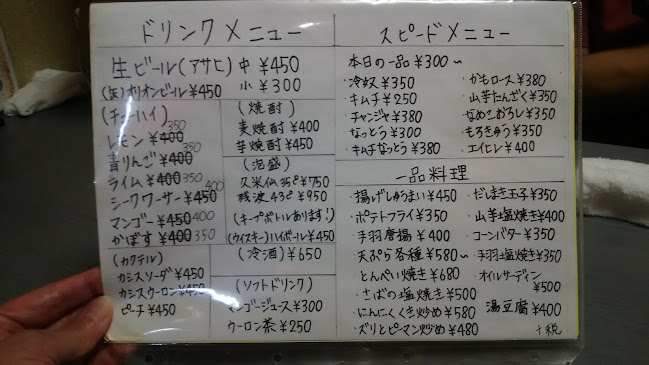 ドリンクメニュー
生ビール(アサヒ) 中 ¥450
小 ¥300
オリオンビール ¥450
(チューハイ)
レモン ¥400 350
青りんご ¥400 350
ライム ¥400 350
シークワーサー ¥450 400
マンゴー ¥450 400
かぼす ¥400 350
(カクテル)
カシスソーダ ¥450
カシスウーロン ¥450
ピーチ ¥450
(焼酎)
麦焼酎 ¥400
芋焼酎 ¥450
(泡盛)
久米仙35° ¥750
残波43° ¥950
(キープボトルあります!)
(ウイスキー)ハイボール ¥450
(冷酒) ¥650
(ソフトドリンク)
マンゴージュース ¥300
ウーロン茶 ¥250
スピードメニュー
本日の一品 ¥300〜
・冷奴 ¥350
・キムチ ¥250
・チャンジャ ¥380
・なっとう ¥300
・キムチなっとう ¥380
・かもロース ¥380
・山芋たんざく ¥350
・なめこおろし ¥350
・もろきゅう ¥350
・エイヒレ ¥400
一品料理
・揚げしゅうまい ¥450
・ポテトフライ ¥350
・手羽唐揚 ¥400
・天ぷら各種 ¥580〜
・とんぺい焼き ¥680
・さばの塩焼き ¥500
・にんにくくき炒め ¥580
・ズリとピーマン炒め ¥480
・だしまき玉子 ¥350
・山芋塩焼き ¥400
・コーンバター ¥350
・手羽塩焼き ¥350
・オイルサーディン
¥500
・湯豆腐 ¥400
+税